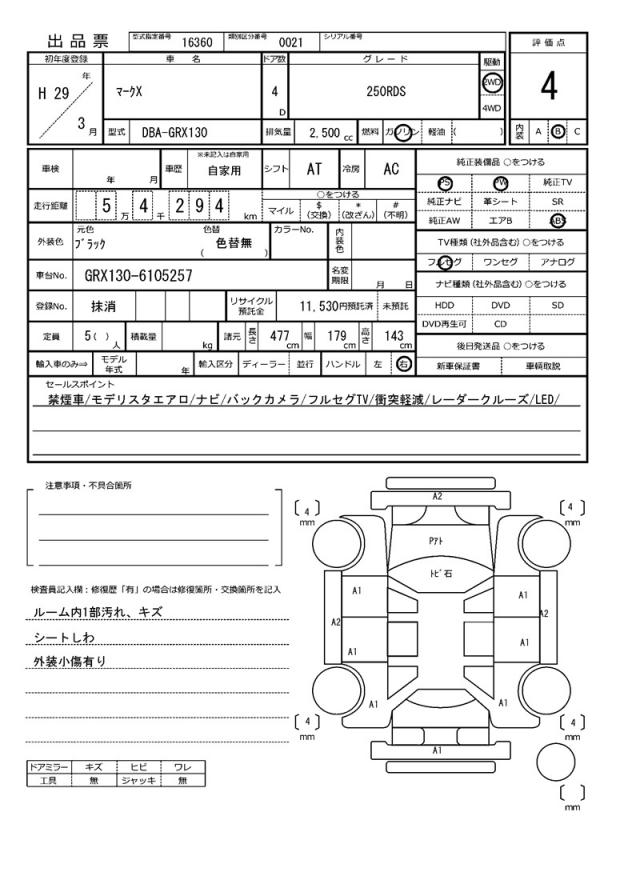 出品票 型式指定番号 16360 類別区分番号 0021 シリアル番号
評価点
4
内装 A B C
初年度登録 車名 ドア数 グレード 駆動
H 29 年 3 月 マークX 4 D 250RDS 2WD
4WD
型式 DBA-GRX130 排気量 2,500 cc 燃料 ガソリン 軽油 ( )
車検 年 月 車歴 ※未記入は自家用 自家用 シフト AT 冷房 AC
走行距離 5 万 4 千 2 9 4 km
○をつける
マイル $(交換) *(改ざん) #(不明)
外装色 元色 ブラック 色替 ( 色替無 ) カラーNo. 内装色
車台No. GRX130-6105257 名変期限 月 日
登録No. 抹消 リサイクル預託金 11,530円預託済 未預託
定員 5( ) 人 積載量 kg 諸元 長さ 477 cm 幅 179 cm 高さ 143 cm
輸入車のみ⇒ モデル年式 年 輸入区分 ディーラー 並行 ハンドル 左 右
純正装備品 ○をつける
PS PW 純正TV
純正ナビ 革シート SR
純正AW エアB ABS
TV種類 (社外品含む) ○をつける
フルセグ ワンセグ アナログ
ナビ種類 (社外品含む) ○をつける
HDD DVD SD
DVD再生可 CD
後日発送品 ○をつける
新車保証書 車輌取説
セールスポイント
禁煙車/モデリスタエアロ/ナビ/バックカメラ/フルセグTV/衝突軽減/レーダークルーズ/LED/
注意事項・不具合箇所
検査員記入欄：修復歴「有」の場合は修復箇所・交換箇所を記入
ルーム内1部汚れ、キズ
シートしわ
外装小傷有り
ドアミラー キズ ヒビ ワレ
工具 無 ジャッキ 無
A2
4 mm
4 mm
Pアト
トビ石
A1 A1
A2 A2
A1 A1
A1 A1
4 mm
4 mm
A1
mm